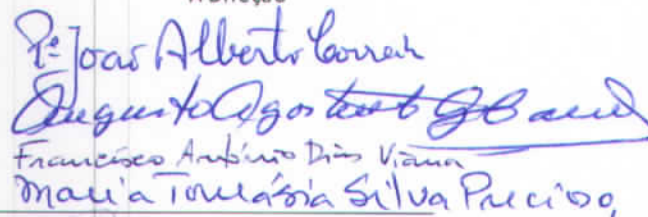 Pe João Alberto Correia
Augusto Agostinho
Francisco António Dias Viana
Maria Tomásia Silva Precioso,